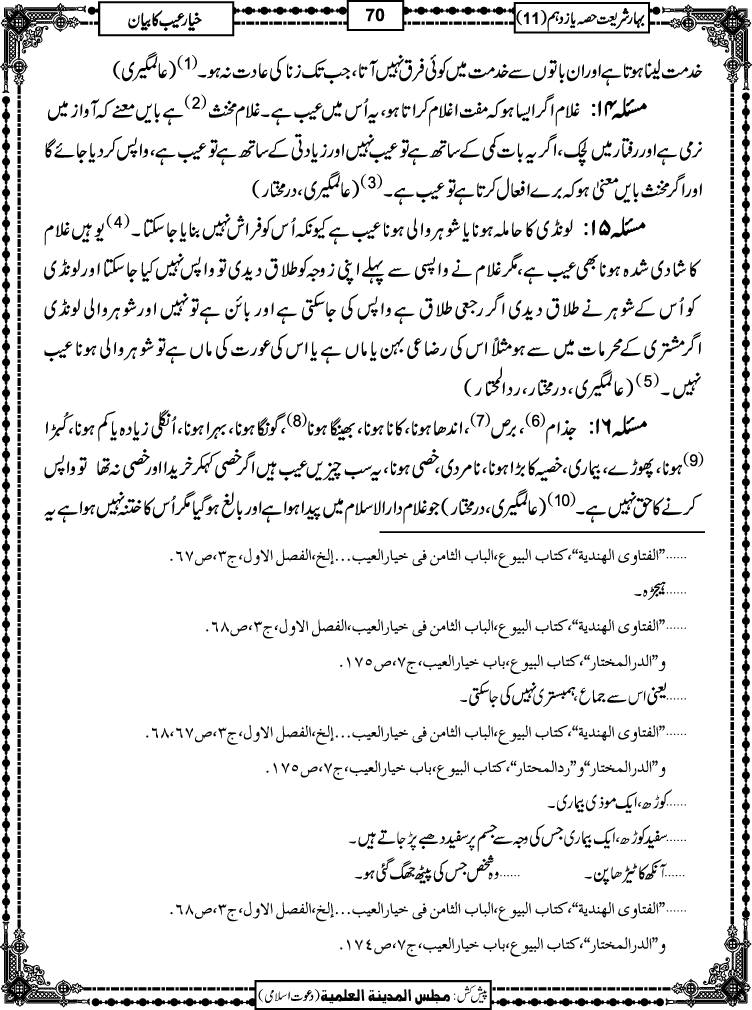 بہار شریعت حصہ یازدہم (11)
70
خیار عیب کا بیان
خدمت لینا ہوتا ہے اور ان باتوں سے خدمت میں کوئی فرق نہیں آتا، جب تک زنا کی عادت نہ ہو۔(1) (عالمگیری)
مسئلہ ۱۴: غلام اگر ایسا ہو کہ مفت اغلام کراتا ہو، یہ اُس میں عیب ہے۔ غلام مخنث(2) ہے بایں معنے کہ آواز میں
نرمی ہے اور رفتار میں لچک، اگر یہ بات کمی کے ساتھ ہے تو عیب نہیں اور زیادتی کے ساتھ ہے تو عیب ہے، واپس کردیا جائے گا
اور اگر مخنث بایں معنیٰ ہو کہ برے افعال کرتا ہے تو عیب ہے۔(3) (عالمگیری، درمختار)
مسئلہ ۱۵: لونڈی کا حاملہ ہونا یا شوہر والی ہونا عیب ہے کیونکہ اُس کو فراش نہیں بنایا جاسکتا۔(4) یوہیں غلام
کا شادی شدہ ہونا بھی عیب ہے، مگر غلام نے واپسی سے پہلے اپنی زوجہ کو طلاق دیدی تو واپس نہیں کیا جاسکتا اور لونڈی
کو اُس کے شوہر نے طلاق دیدی اگر رجعی طلاق ہے واپس کی جاسکتی ہے اور بائن ہے تو نہیں اور شوہر والی لونڈی
اگر مشتری کے محرمات میں سے ہو مثلاً اس کی رضاعی بہن یا ماں ہے یا اس کی عورت کی ماں ہے تو شوہر والی ہونا عیب
نہیں۔(5) (عالمگیری، درمختار، ردالمحتار)
مسئلہ ۱۶: جذام(6)، برص(7)، اندھا ہونا، کانا ہونا، بھینگا ہونا(8)، گونگا ہونا، بہرا ہونا، اُنگلی زیادہ یا کم ہونا، کُبڑا
(9) ہونا، پھوڑے، بیماری، خصیہ کا بڑا ہونا، نامردی، خصی ہونا، یہ سب چیزیں عیب ہیں اگر خصی کہکر خریدا اور خصی نہ تھا تو واپس
کرنے کا حق نہیں ہے۔(10) (عالمگیری، درمختار) جو غلام دارالاسلام میں پیدا ہوا ہے اور بالغ ہوگیا مگر اُس کا ختنہ نہیں ہوا ہے یہ
......”الفتاوی الھندیۃ“، کتاب البیوع، الباب الثامن فی خیار العیب...إلخ، الفصل الاول، ج۳، ص۶۷.
......ہیجڑہ۔
......”الفتاوی الھندیۃ“، کتاب البیوع، الباب الثامن فی خیار العیب...إلخ، الفصل الاول، ج۳، ص۶۸.
و”الدرالمختار“، کتاب البیوع، باب خیار العیب، ج۷، ص۱۷۵.
......یعنی اس سے جماع، ہمبستری نہیں کی جاسکتی۔
......”الفتاوی الھندیۃ“، کتاب البیوع، الباب الثامن فی خیار العیب...إلخ، الفصل الاول، ج۳، ص۶۷،۶۸.
و”الدرالمختار“ و”ردالمحتار“، کتاب البیوع، باب خیار العیب، ج۷، ص۱۷۵.
......کوڑھ، ایک موذی بیماری۔
......سفید کوڑھ، ایک بیماری جس کی وجہ سے جسم پر سفید دھبے پڑ جاتے ہیں۔
......آنکھ کا ٹیڑھا پن۔ ......وہ شخص جس کی پیٹھ جھگ گئی ہو۔
......”الفتاوی الھندیۃ“، کتاب البیوع، الباب الثامن فی خیار العیب...إلخ، الفصل الاول، ج۳، ص۶۸.
و”الدرالمختار“، کتاب البیوع، باب خیار العیب، ج۷، ص۱۷۴.
پیش کش: مجلس المدینۃ العلمیۃ (دعوت اسلامی)